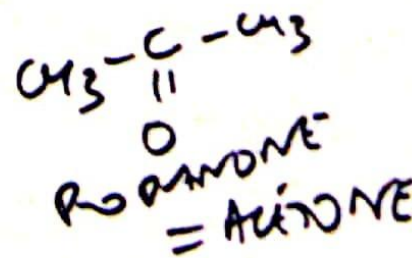 CH3-C-CH3
||
O
PROPANONE
= ACÉTONE